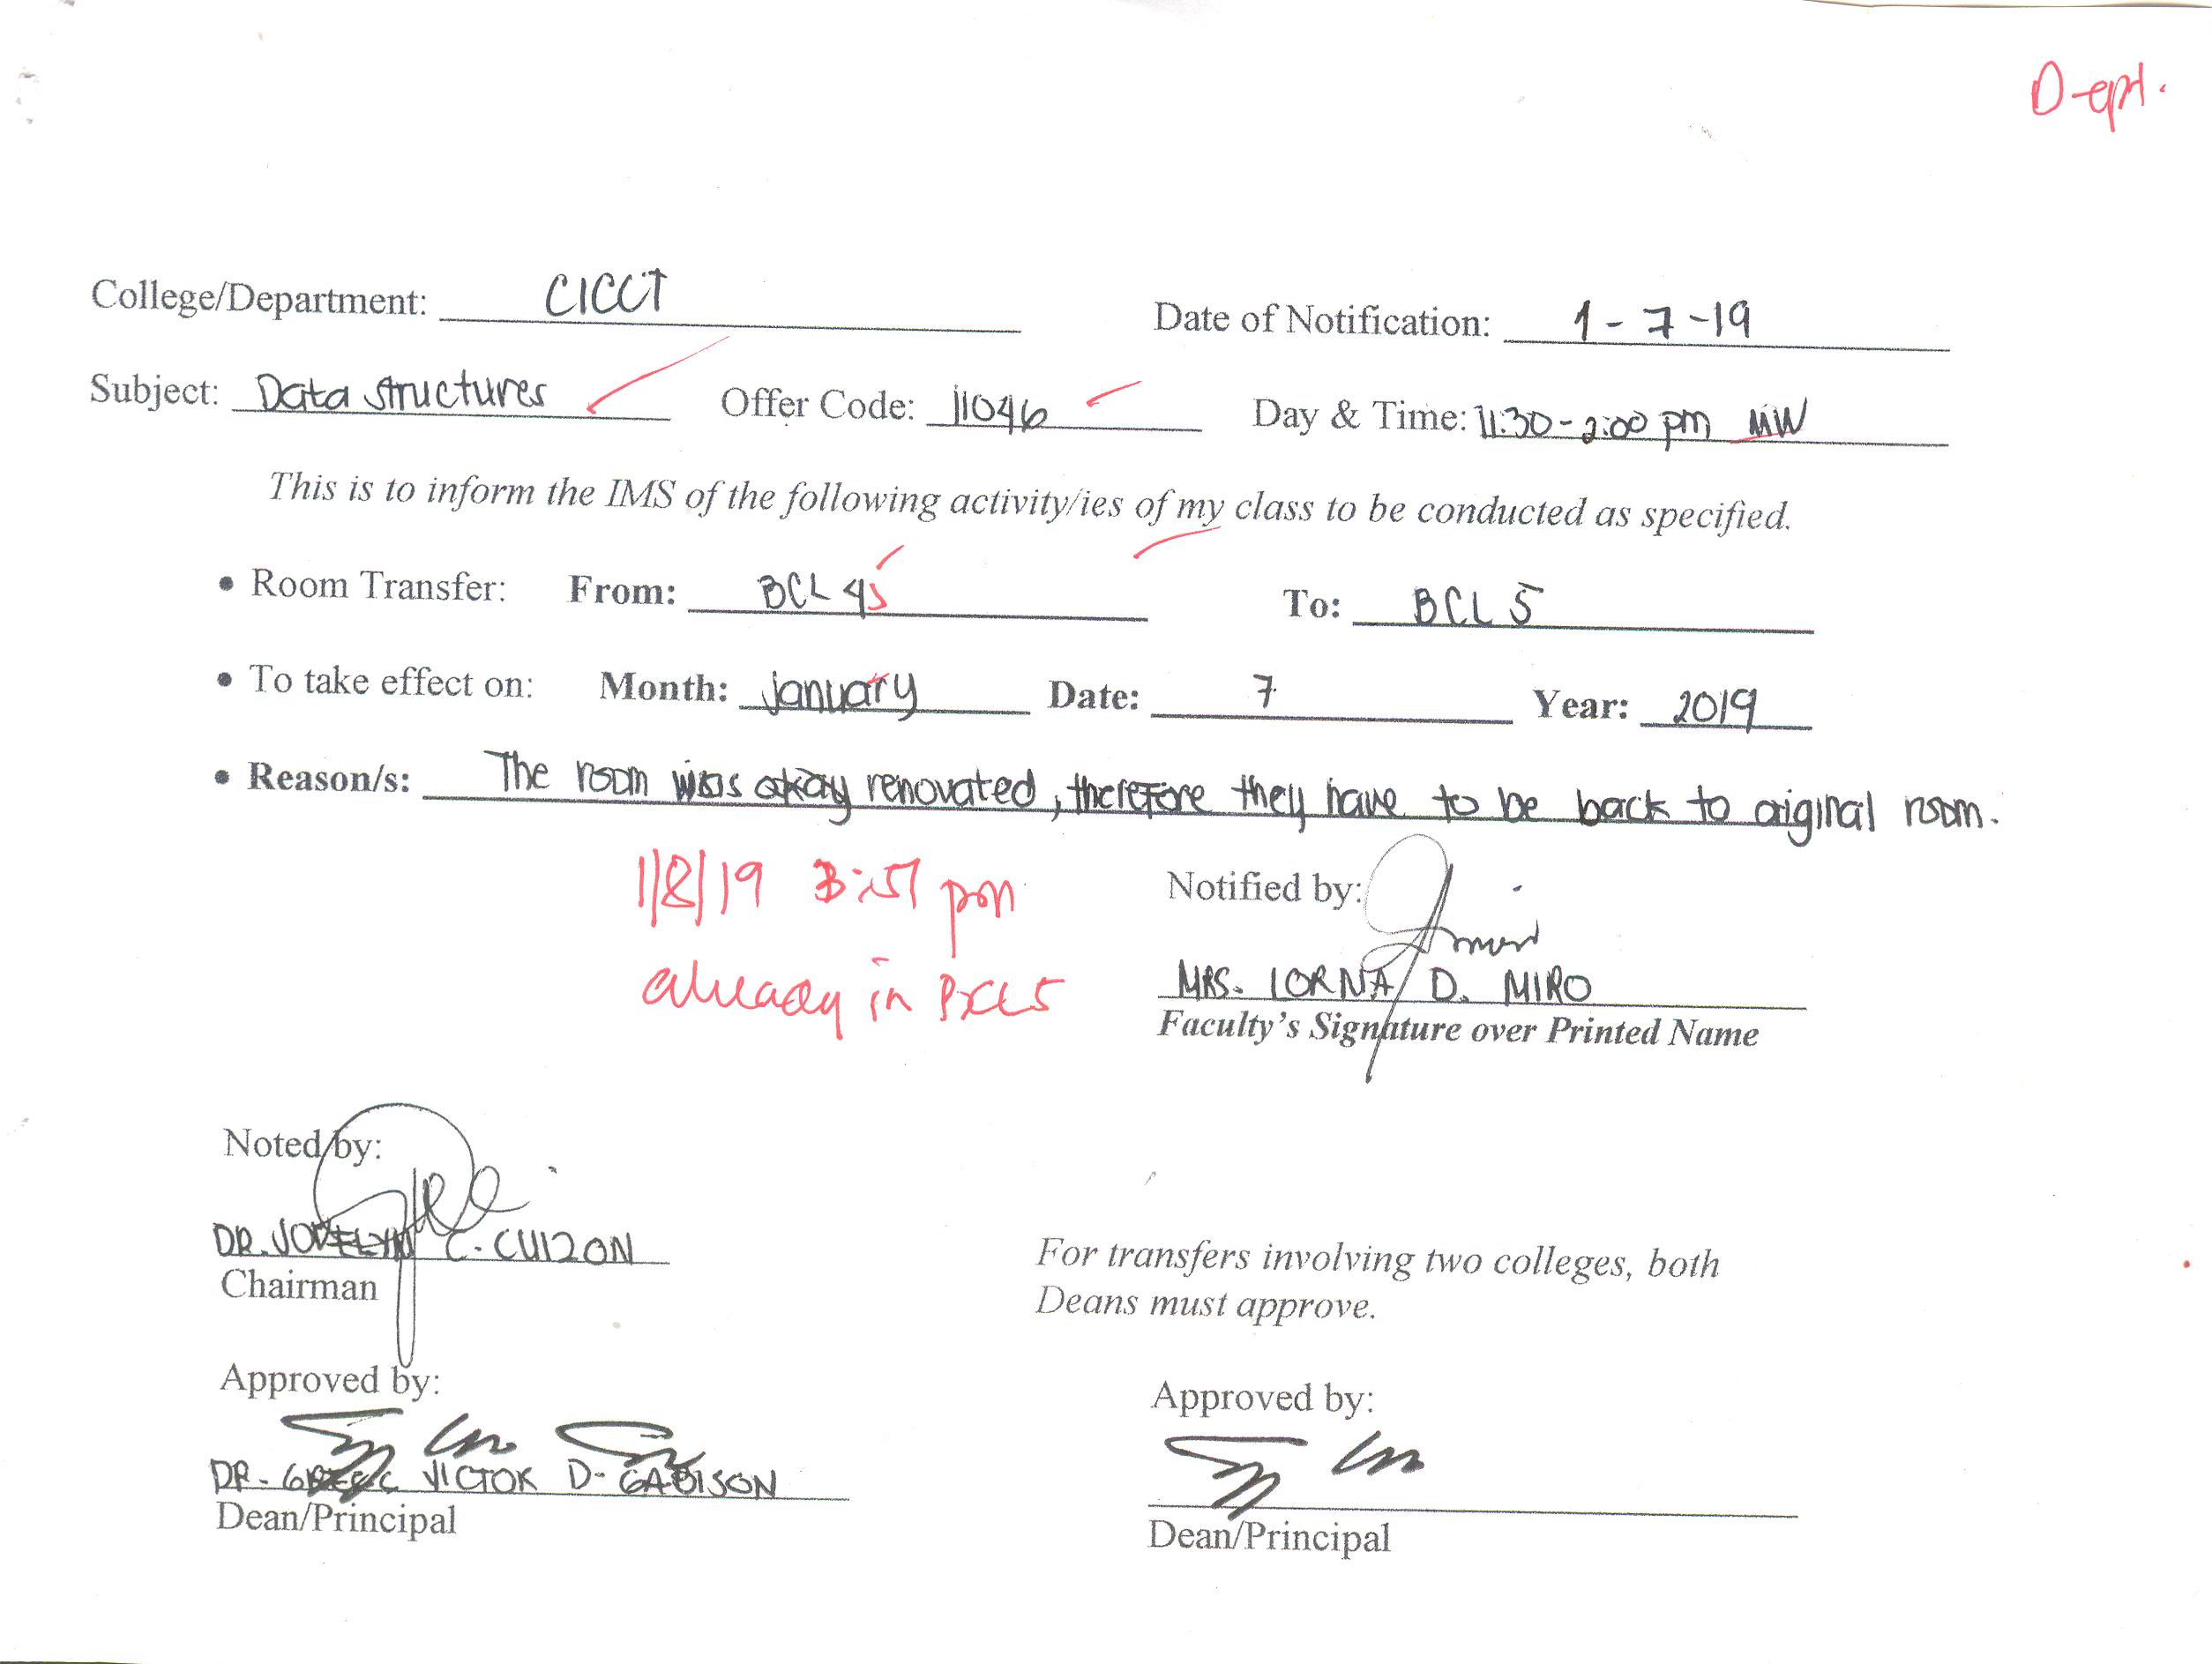 Dept.
College/Department: CICCT
Date of Notification: 1-7-19
Subject: Data structures Offer Code: 11046 Day & Time: 11:30-2:00 pm MW
This is to inform the IMS of the following activity/ies of my class to be conducted as specified.
• Room Transfer: From: BCL 45 To: BCL 5
• To take effect on: Month: January Date: 7 Year: 2019
• Reason/s: The room was okay renovated, therefore they have to be back to original room.
1/8/19 3:57 pm
already in BCL5
Notified by:
MRS. LORNA D. MIRO
Faculty's Signature over Printed Name
Noted by:
DR. JOVELYN C. CUIZON
Chairman
For transfers involving two colleges, both
Deans must approve.
Approved by:
DR. VICTOR D. GABISON
Dean/Principal
Approved by:
Dean/Principal